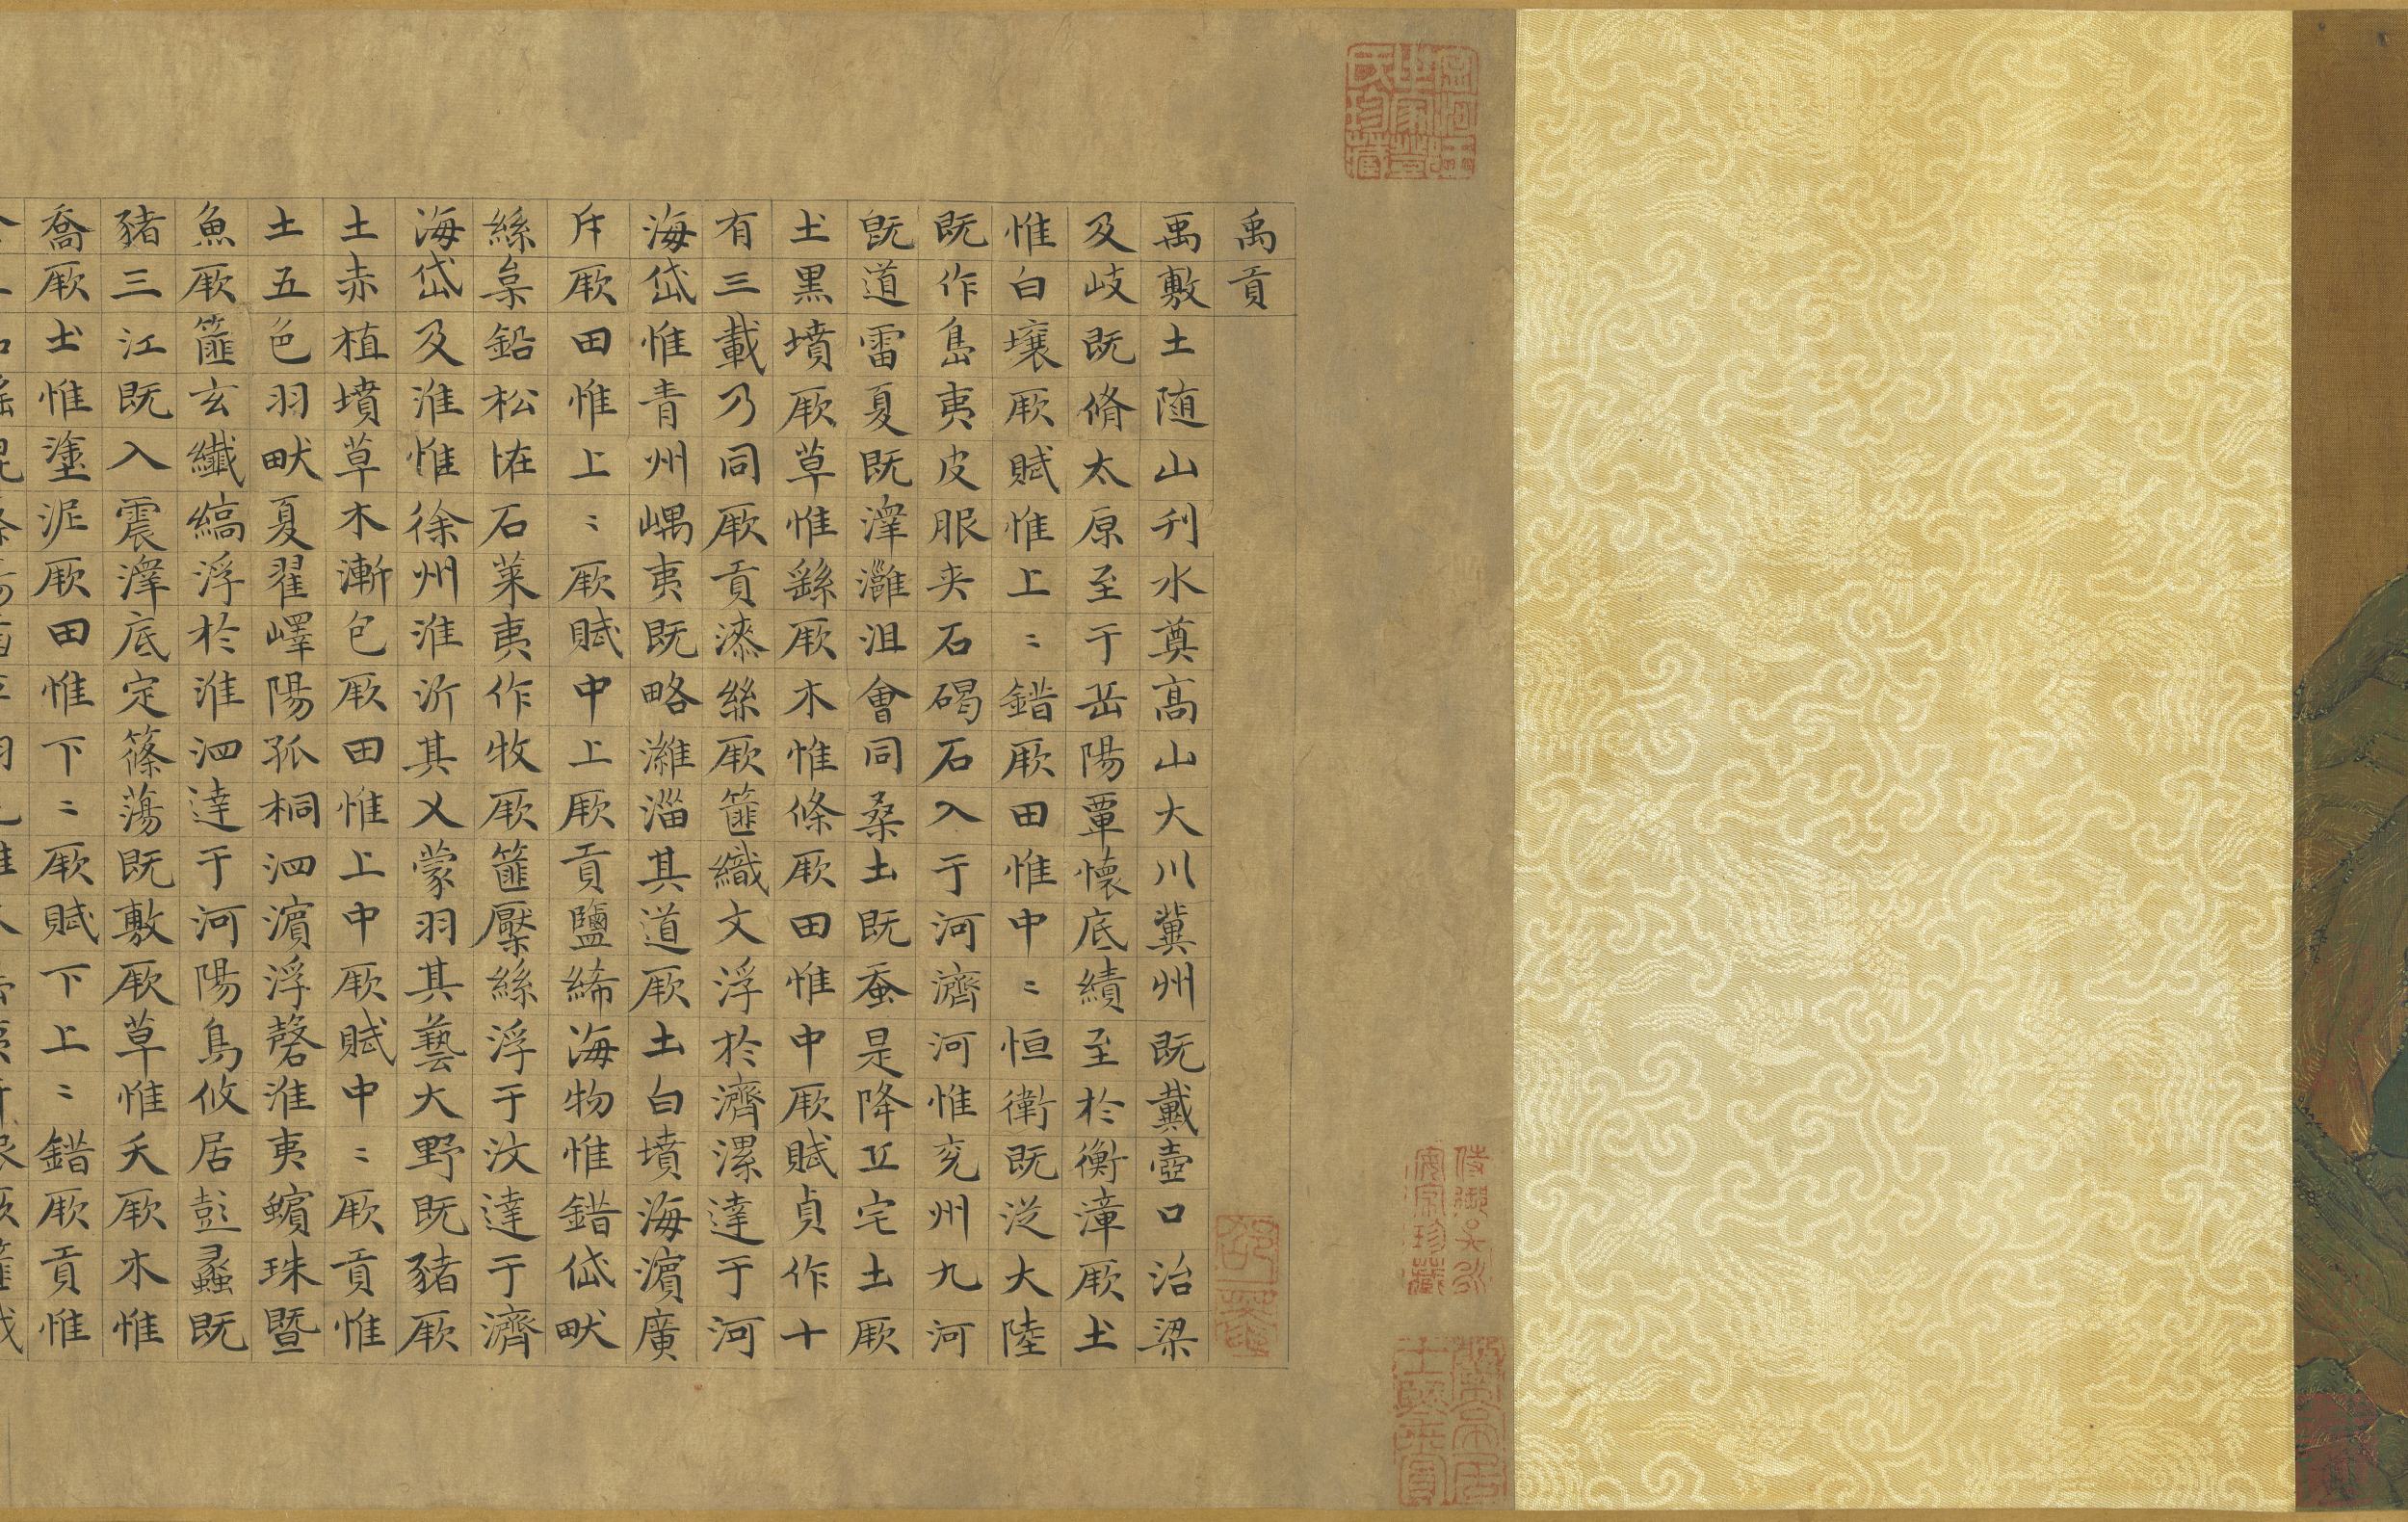 禹貢
禹敷土随山刊水奠高山大川冀州既戴壺口治梁
及岐既脩太原至于岳陽覃懷底績至於衡漳厥土
惟白壤厥賦惟上〻錯厥田惟中〻恒衛既從大陸
既作島夷皮服夹石碣石入于河濟河惟兖州九河
既道雷夏既澤灉沮會同桑土既蚕是降丘宅土厥
土黒墳厥草惟繇厥木惟條厥田惟中厥賦貞作十
有三載乃同厥貢漆絲厥篚織文浮於濟漯達于河
海岱惟青州嵎夷既略濰淄其道厥土白墳海濵廣
斥厥田惟上〻厥賦中上厥貢鹽絺海物惟錯岱畎
絲枲鉛松恠石莱夷作牧厥篚檿絲浮于汶達于濟
海岱及淮惟徐州淮沂其乂蒙羽其藝大野既豬厥
土赤植墳草木漸包厥田惟上中厥賦中〻厥貢惟
土五色羽畎夏翟嶧陽孤桐泗濵浮磬淮夷蠙珠暨
魚厥篚玄纖縞浮於淮泗達于河陽鳥攸居彭蠡既
豬三江既入震澤底定篠蕩既敷厥草惟夭厥木惟
喬厥土惟塗泥厥田惟下〻厥賦下上〻錯厥貢惟